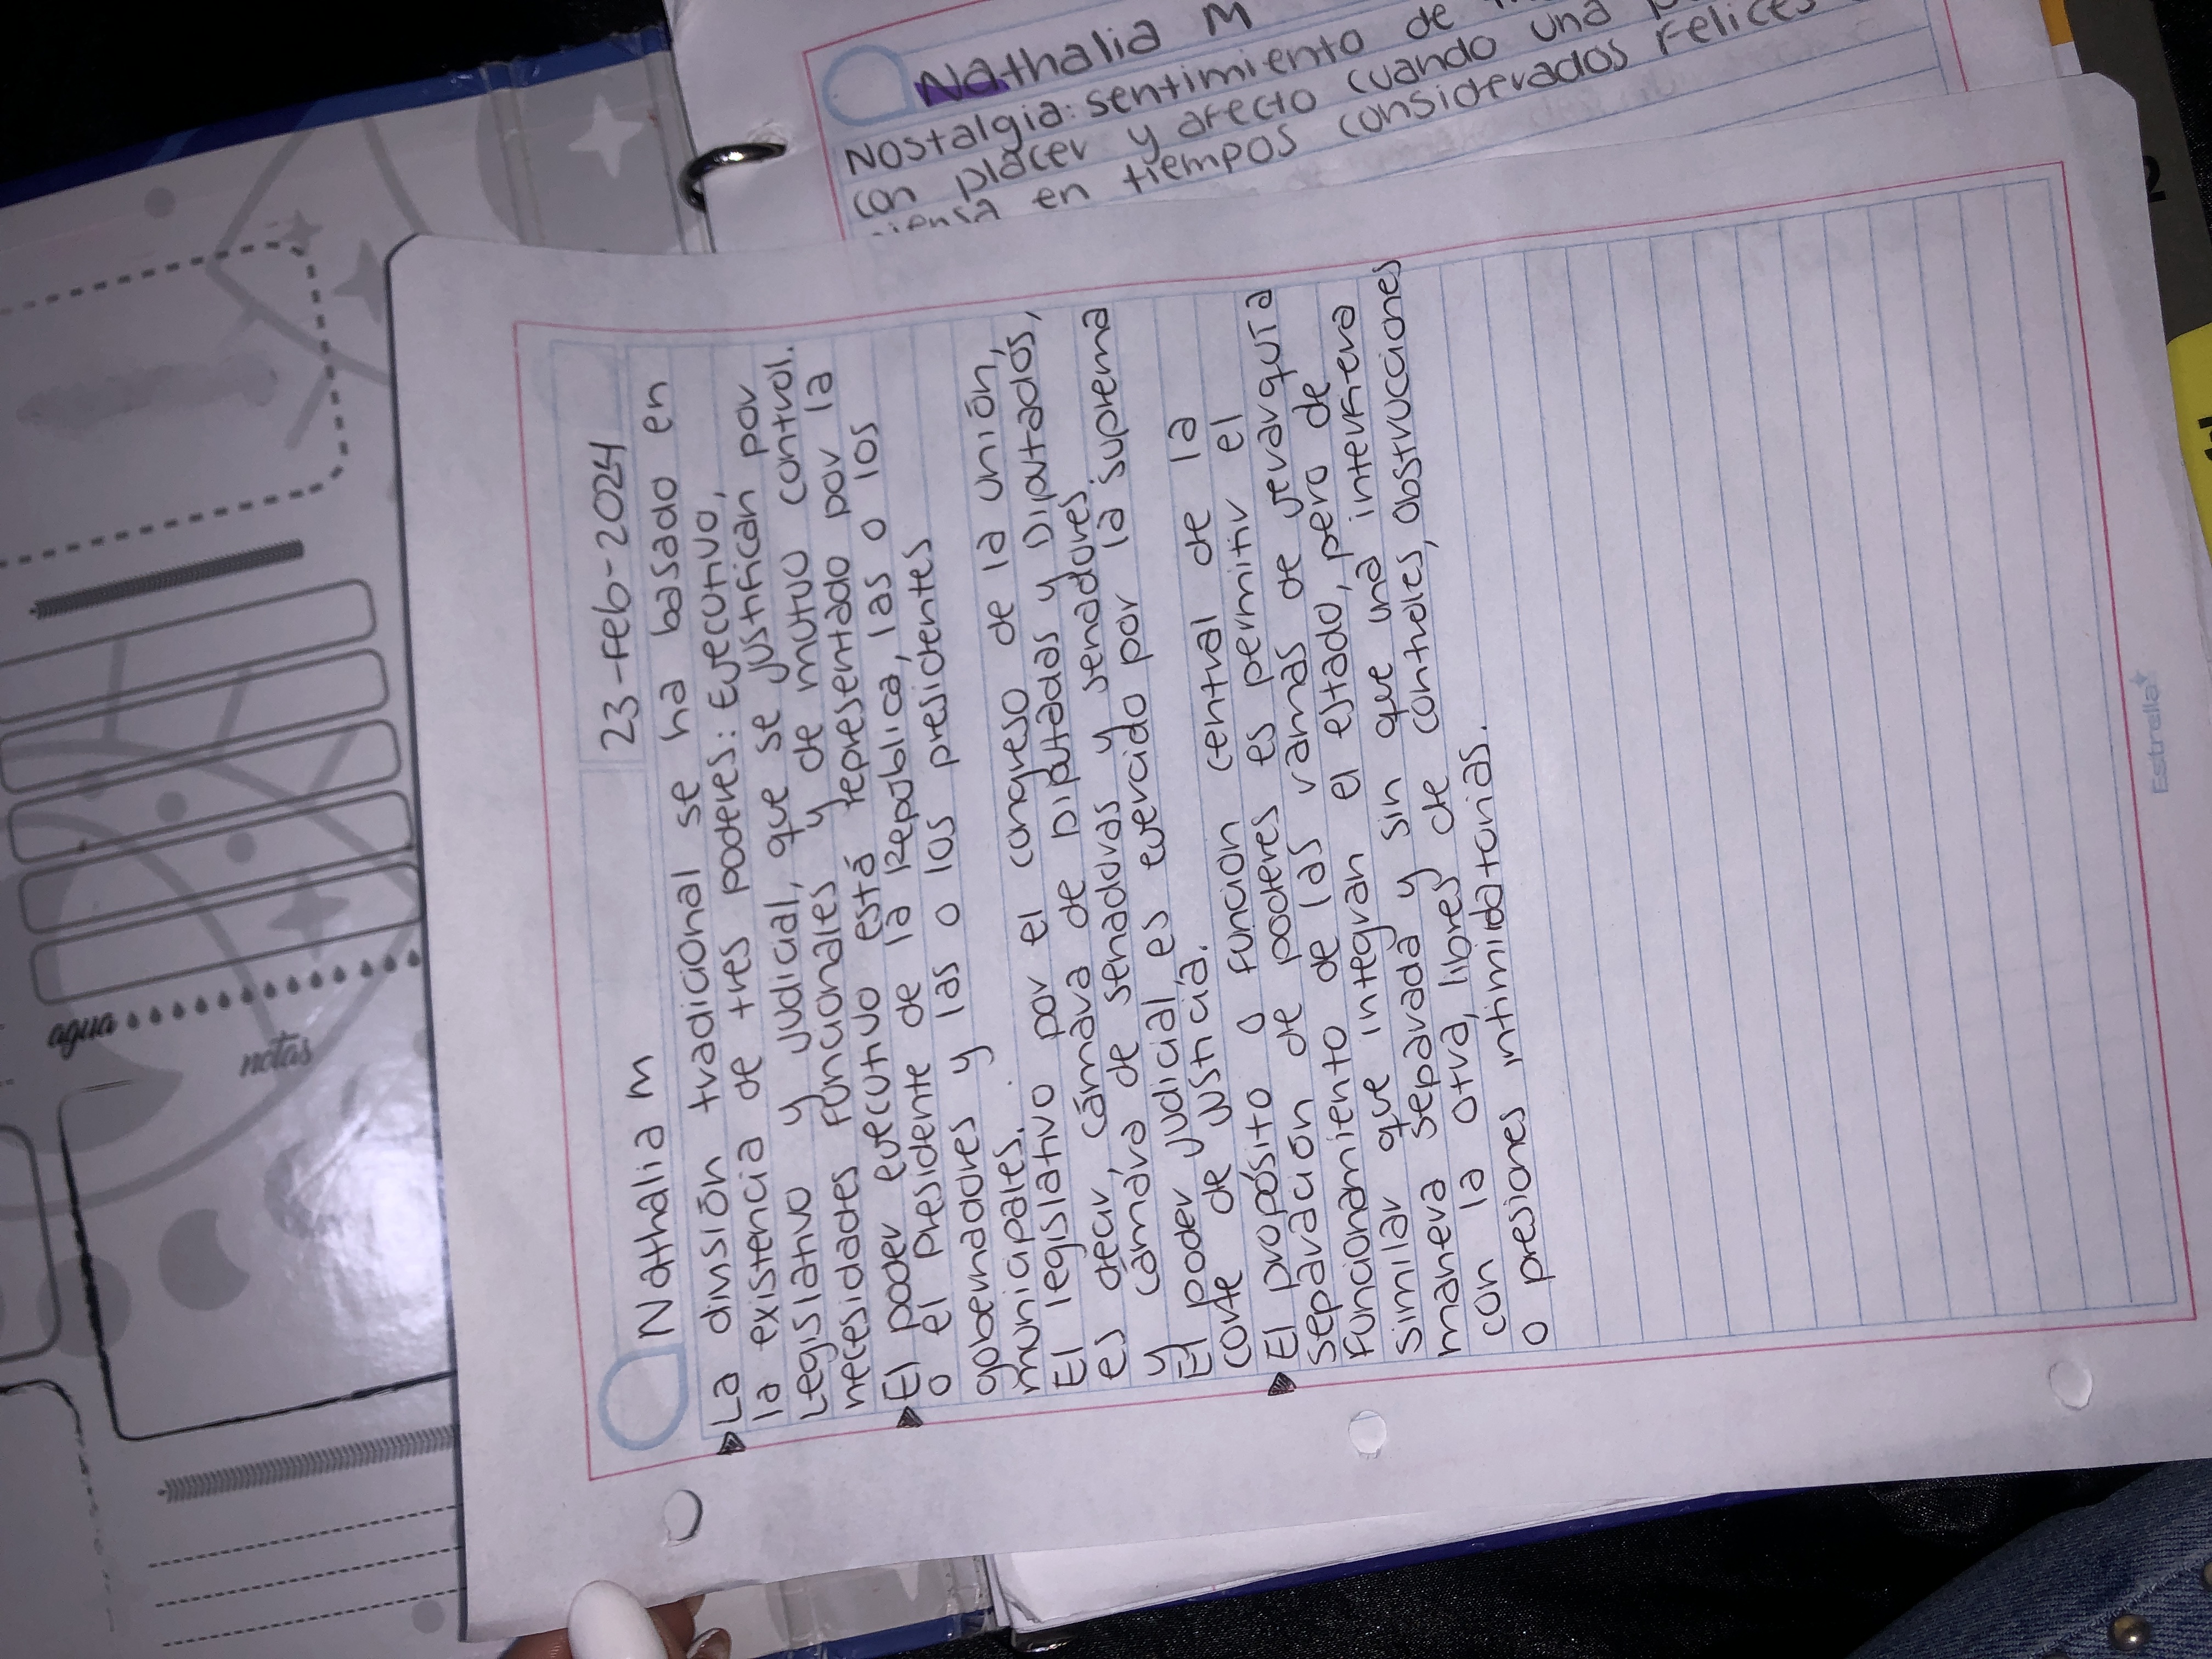 Nathalia M
Nostalgia: sentimiento de
con placer y afecto cuando una
piensa en tiempos considerados felices
Nathalia m
23-Feb-2024
La división tradicional se ha basado en
la existencia de tres poderes: Ejecutivo,
Legislativo y judicial, que se justifican por
necesidades funcionales y de mutuo control.
El poder ejecutivo está representado por la
o el presidente de la República, las o los
gobernadores y las o los presidentes
municipales.
El legislativo por el congreso de la unión,
es decir, cámara de Diputadas y Diputados,
y camára de senadoras y senadores
El poder judicial es ejercido por la suprema
corte de justicia.
El propósito o función central de la
separación de poderes es permitir el
funcionamiento de las ramas de jerarquía
similar que integran el estado, pero de
manera separada y sin que una interfiera
con la otra, libres de controles, obstrucciones
o presiones intimidatorias.
Estrella
agua
notas